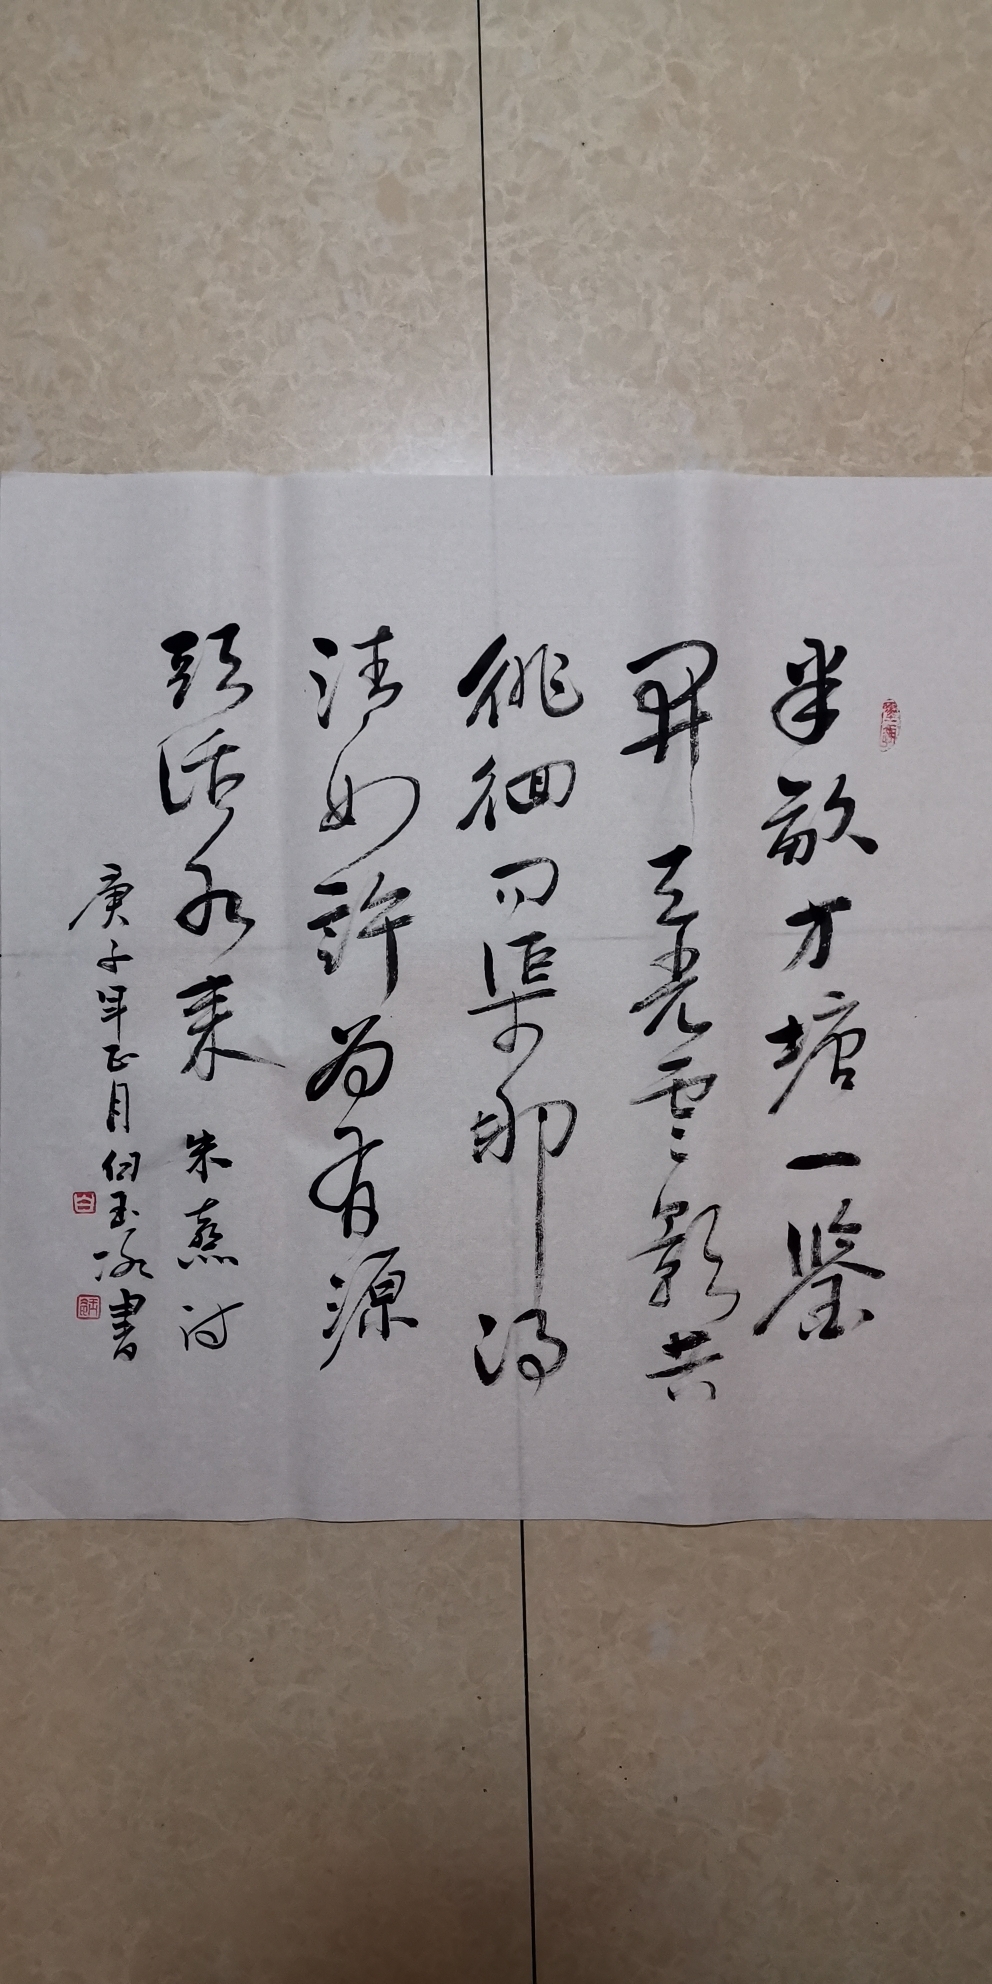 半畝方塘一鉴
開天光雲影共
徘徊问渠那得
清如許為有源
頭活水來 朱熹诗
庚子年正月 玉冰書